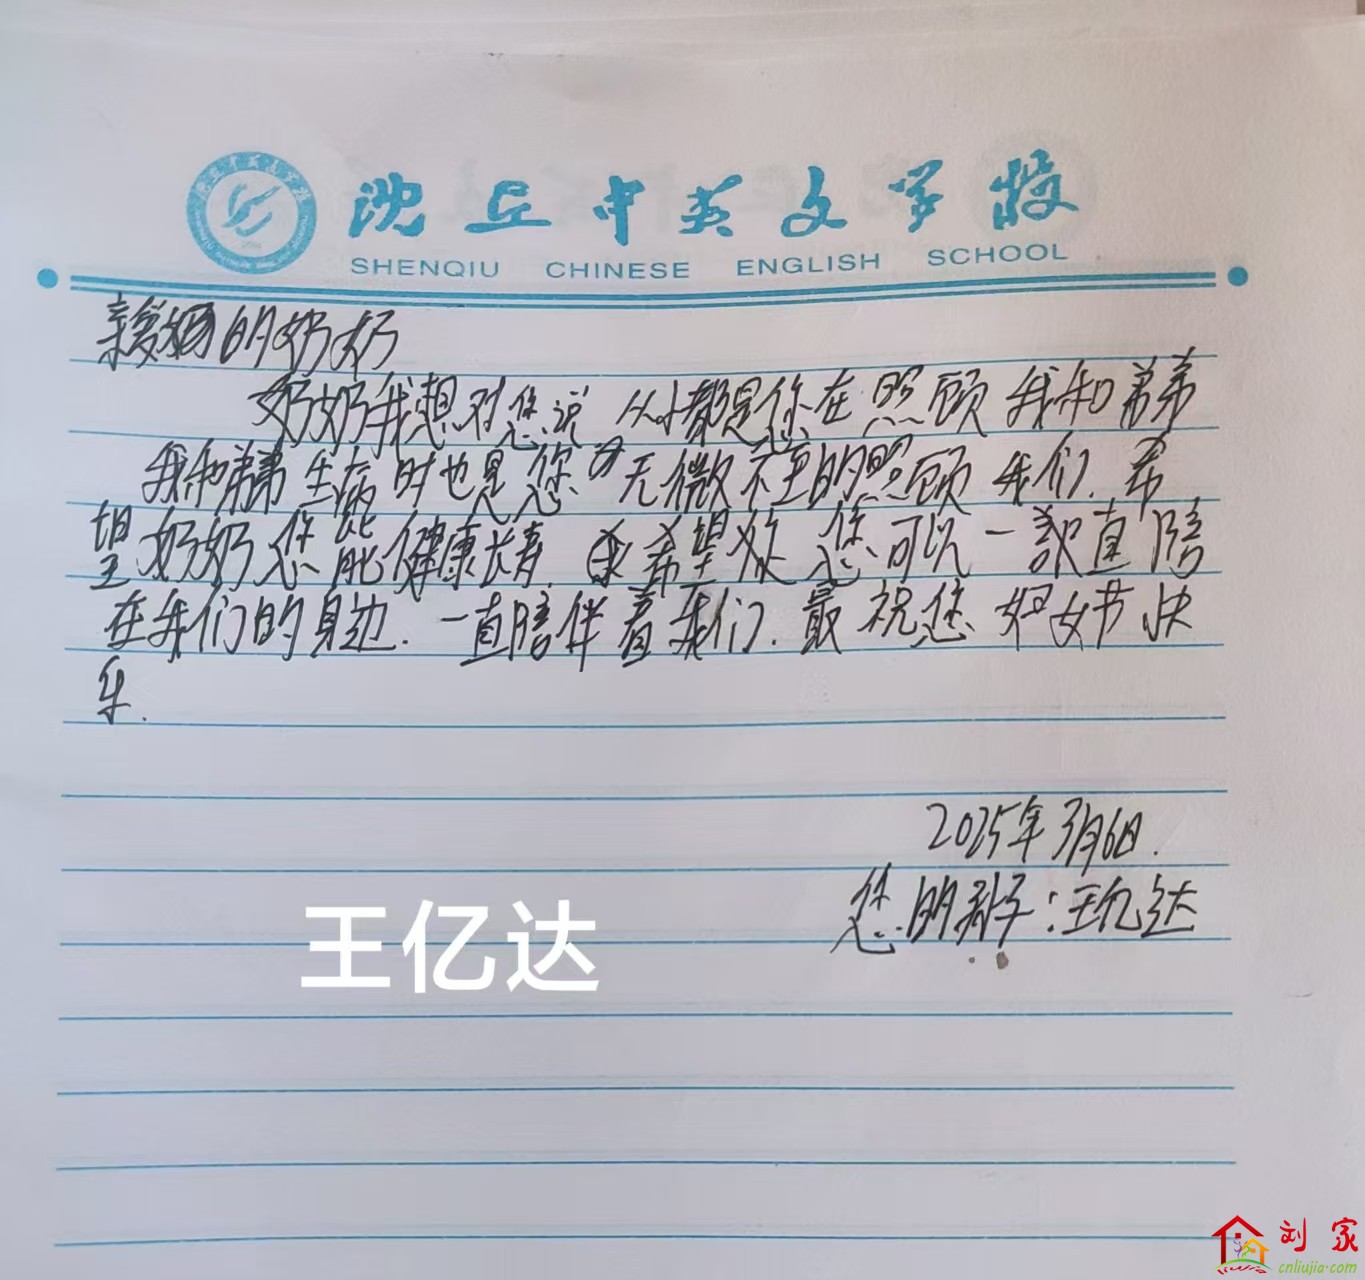 沈丘中英文学校
SHENQIU CHINESE ENGLISH SCHOOL
亲爱的奶奶
奶奶我想对您说 从小都是您在照顾我和弟弟
我和弟弟生病时也是您无微不至的照顾我们.希
望奶奶您能健康长寿.希望您可以一直陪
在我们的身边.一直陪伴着我们.最祝您妇女节快
乐.
2025年3月6日.
您的孙子:王亿达
王亿达
刘家
cnliujia.com